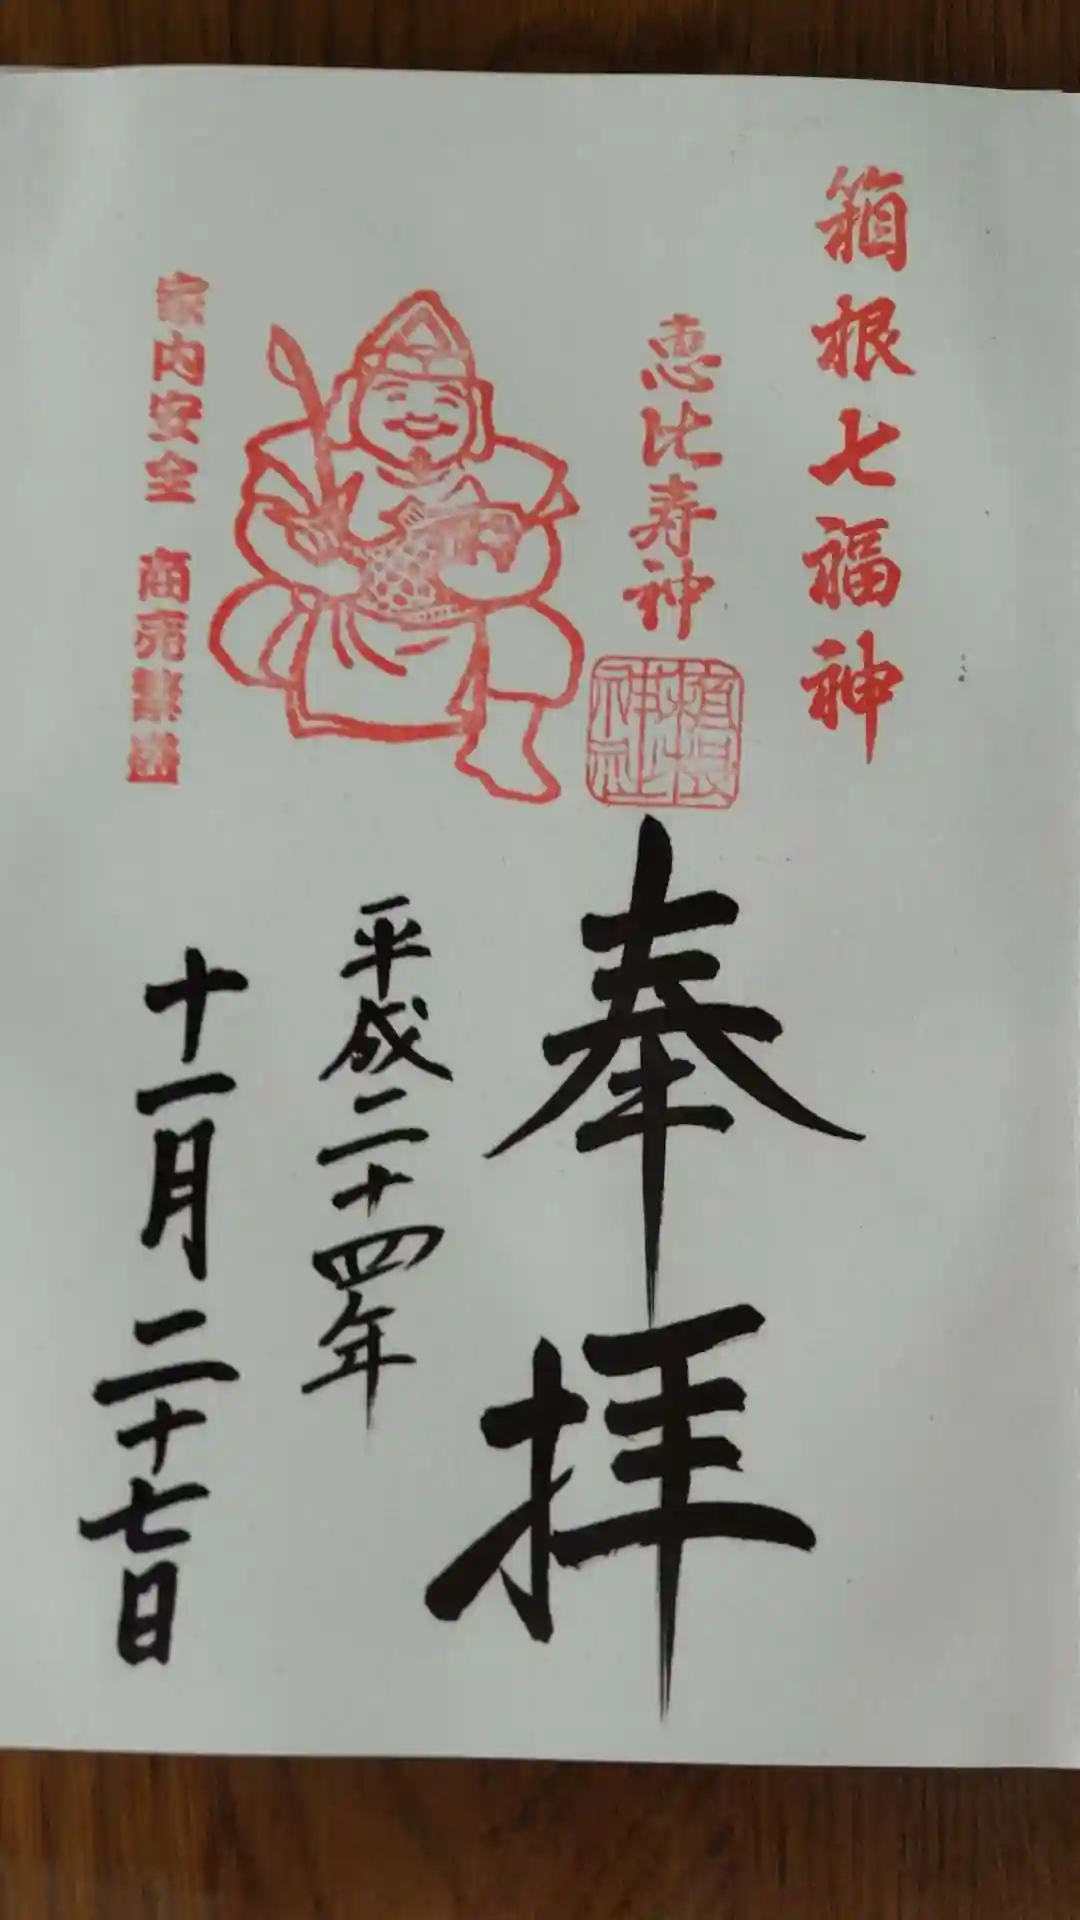 箱根七福神
恵比寿神
箱根神社
家内安全 商売繁盛
奉拝
平成二十四年
十一月二十七日